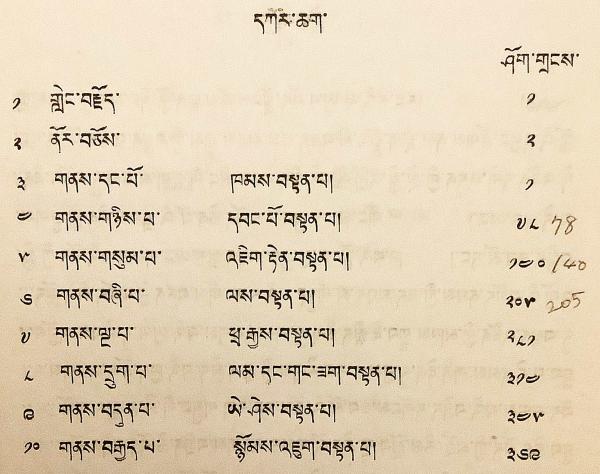 དཀར་ཆག་
ཤོག་གྲངས་
༡ གླེང་བརྗོད་ ༡
༢ ནོར་བཅོས་ ༢
༣ གནས་དང་པོ་ ཁམས་བསྟན་པ། ༡
༤ གནས་གཉིས་པ་ དབང་པོ་བསྟན་པ། ༧༨ 78
༥ གནས་གསུམ་པ་ འཇིག་རྟེན་བསྟན་པ། ༡༤༠ 140
༦ གནས་བཞི་པ་ ལས་བསྟན་པ། ༢༠༥ 205
༧ གནས་ལྔ་པ་ ཕྲ་རྒྱས་བསྟན་པ། ༢༨༡
༨ གནས་དྲུག་པ་ ལམ་དང་གང་ཟག་བསྟན་པ། ༣༡༤
༩ གནས་བདུན་པ་ ཡེ་ཤེས་བསྟན་པ། ༣༤༥
༡༠ གནས་བརྒྱད་པ་ སྙོམས་འཇུག་བསྟན་པ། ༣༦༩